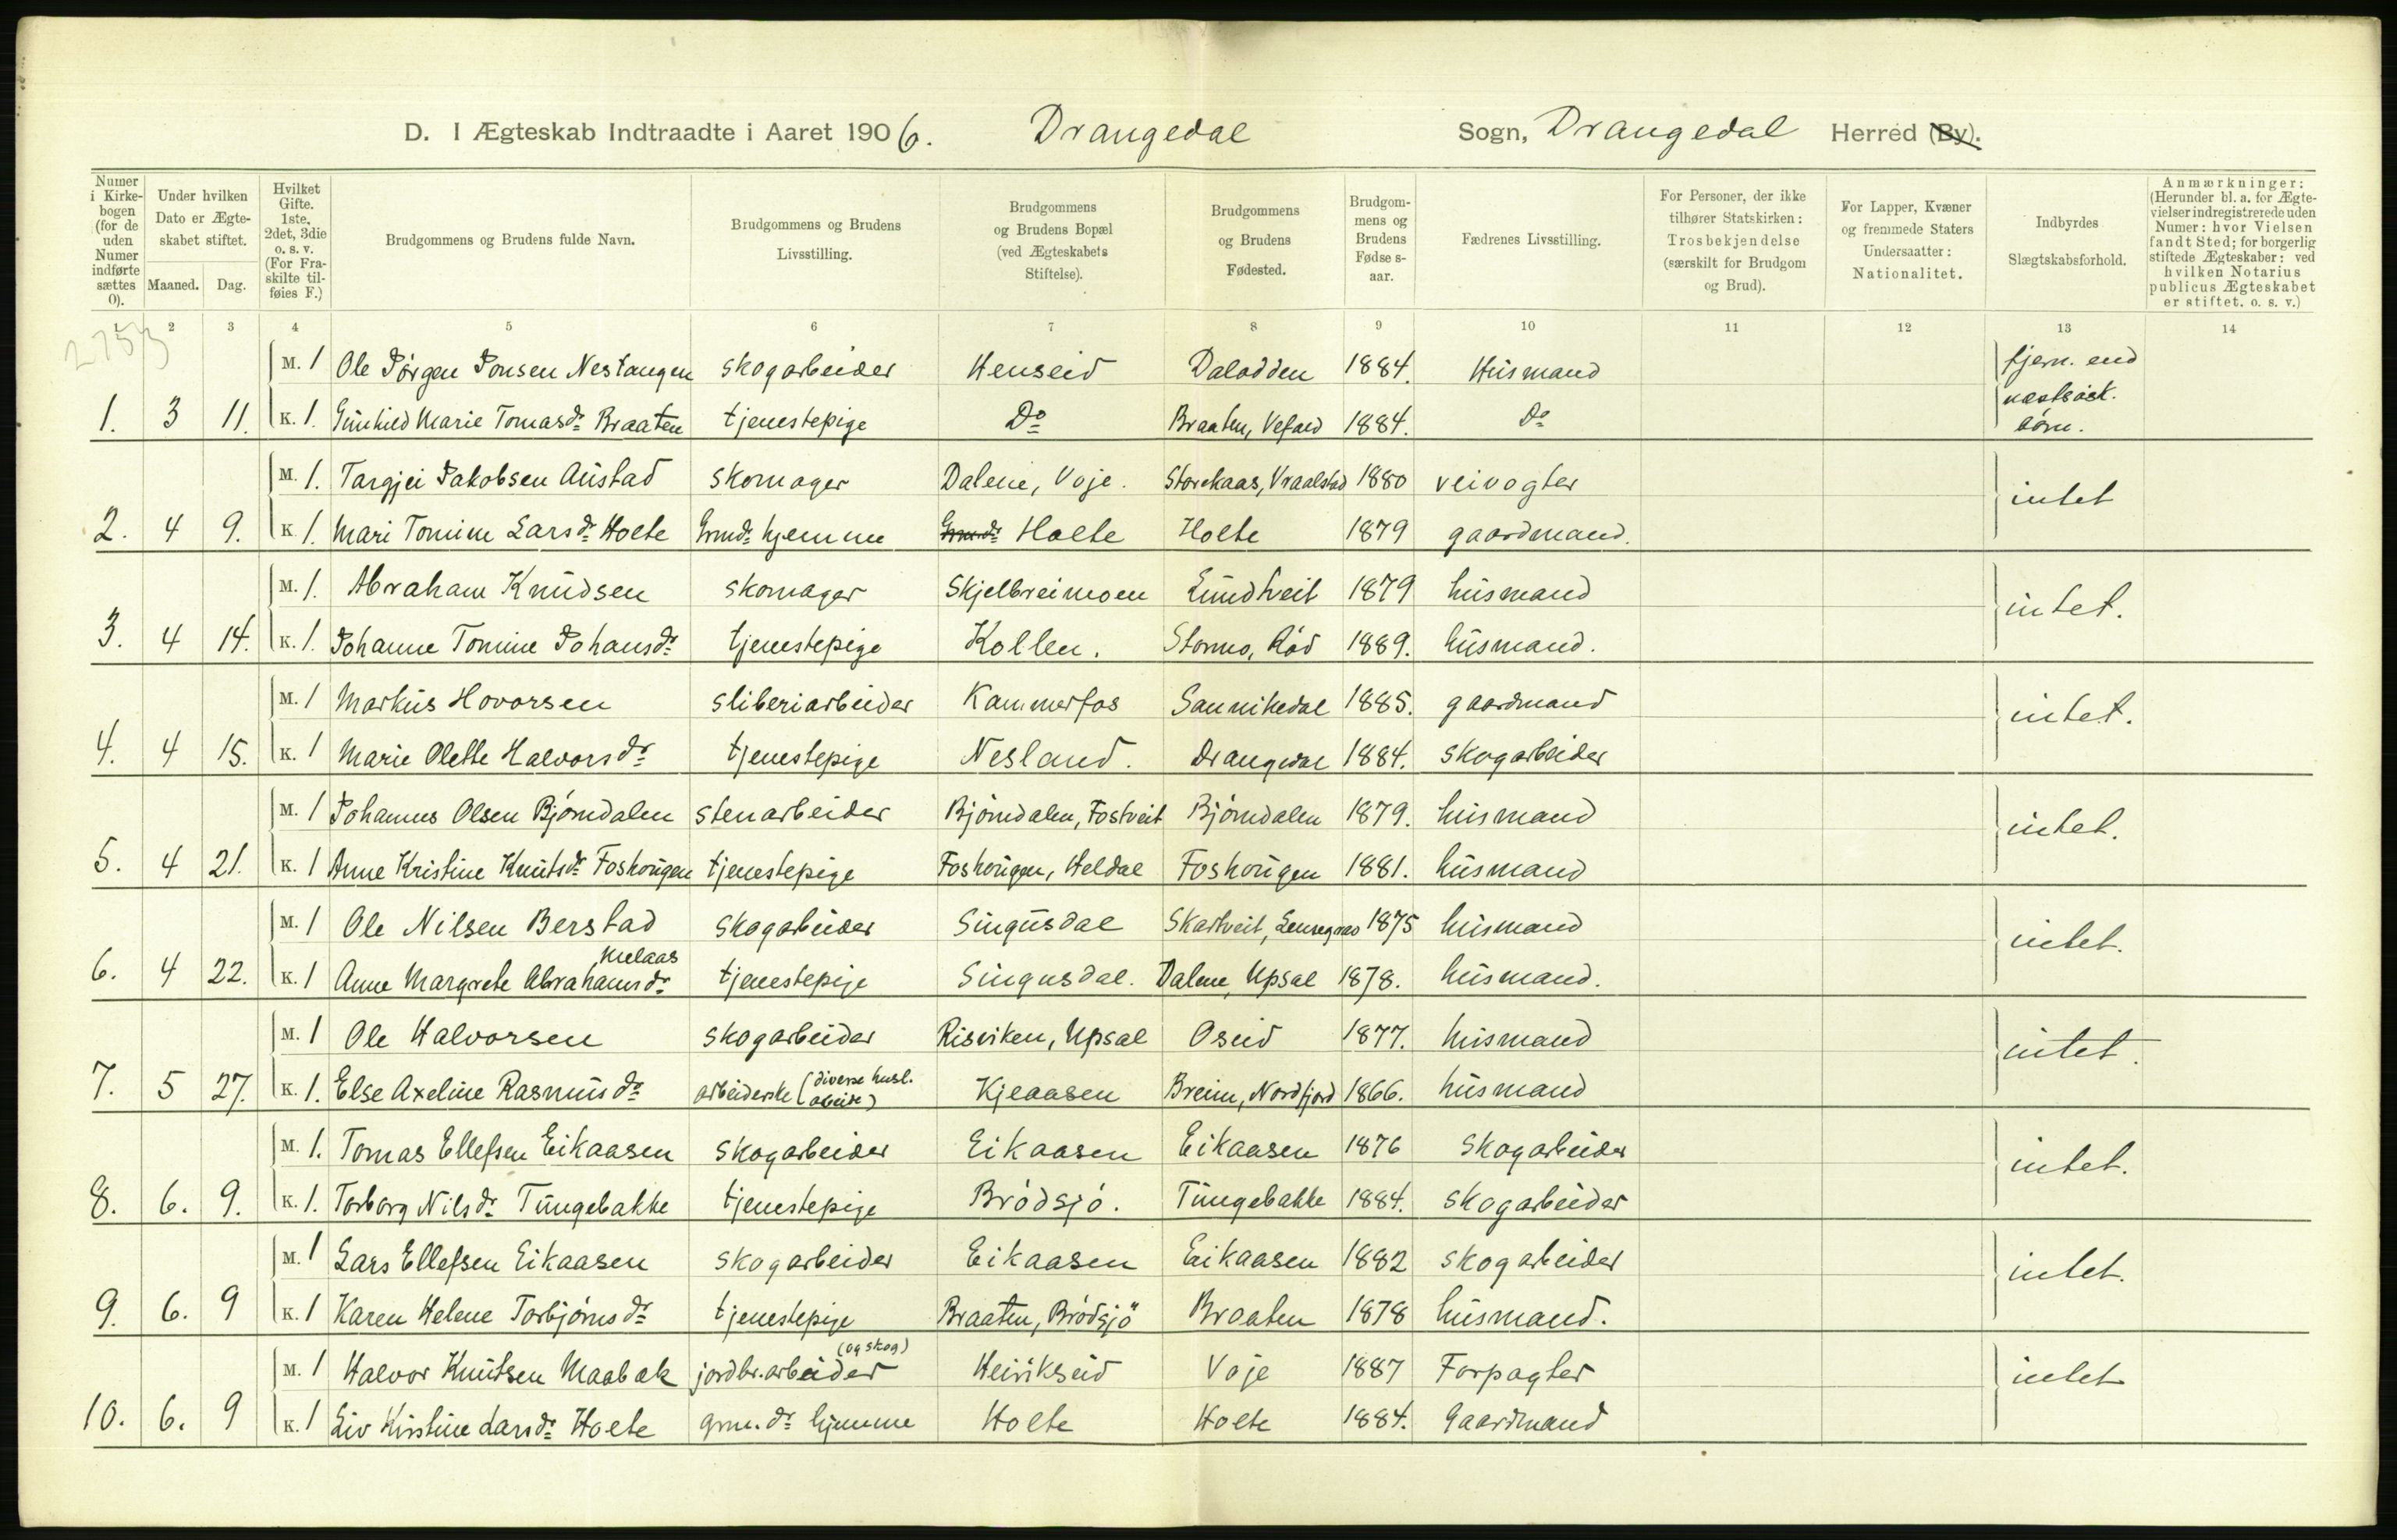 D. I Ægteskab Indtraadte i Aaret 1906. Drangedal Sogn, Drangedal Herred (By).
Numer i Kirkebogen (for de uden Numer indførte sættes 0).
Under hvilken Dato er Ægteskabet stiftet.
Maaned. Dag.
Hvilket Gifte. 1ste, 2det, 3die o. s. v. (For Fraskilte tilføies F.)
Brudgommens og Brudens fulde Navn.
Brudgommens og Brudens Livsstilling.
Brudgommens og Brudens Bopæl (ved Ægteskabets Stiftelse).
Brudgommens og Brudens Fødested.
Brudgommens og Brudens Fødselsaar.
Fædrenes Livsstilling.
For Personer, der ikke tilhører Statskirken: Trosbekjendelse (særskilt for Brudgom og Brud).
For Lapper, Kvæner og fremmede Staters Undersaatter: Nationalitet.
Indbyrdes Slægtskabsforhold.
Anmærkninger: (Herunder bl. a. for Ægtevielser indregistrerede uden Numer: hvor Vielsen fandt Sted; for borgerlig stiftede Ægteskaber: ved hvilken Notarius publicus Ægteskabet er stiftet. o. s. v.)
1 2 3 4 5 6 7 8 9 10 11 12 13 14
M. 1 Ole Jörgen Jonsen Nestangen skogarbeider Henseid Dalodden 1884. Husmand fjern. end
1. 3 11. K. 1. Gunhild Marie Tomasdr Braaten tjenestepige Do Braaten, 1884. Do næstsösk. börn.
M. 1. Targjei Jakobsen Austad skomager Dalene, Voje. Storekaas, Vraalstad 1880 veivogter intet
2. 4 9. K. 1. Mari Tomine Larsdr Holte Grmdr hjemme Holte Holte 1879 gaardmand.
M. 1. Abraham Knudsen skomager Skjelbreimoen Lundtveit 1879 husmand intet.
3. 4 14. K. 1. Johanne Tomine Johansdr tjenestepige Kollen. Stormo, Röd 1889. husmand.
M. 1 Markus Hovorsen sliberiarbeider Kammerfos Sannikedal 1885. gaardmand intet.
4. 4 15. K. 1 Marie Olette Halvorsdr tjenestepige Nesland. Drangedal 1884. skogarbeider
M. 1 Johannes Olsen Björndalen stenarbeider Björndalen, Fostveit Björndalen 1879. husmand intet.
5. 4 21. K. 1 Anne Kristine Knutsdr Foshougen tjenestepige Foshougen, Heldal Foshougen 1881. husmand
M. 1 Ole Nilsen Berstad skogarbeider Singusdal Skartveit, 1875 husmand intet.
6. 4 22. K. 1 Anne Margrete Abrahamsdr tjenestepige Singusdal. Dalene, Upsal 1878. husmand.
M. 1 Ole Halvorsen skogarbeider Risviken, Upsal Oseid 1877. husmand intet.
7. 5 27. K. 1. Else Axeline Rasmusdr arbeiderske (diverse husl. arbeide) Kjeaasen Breim, Nordfjord 1866. husmand
M. 1. Tomas Ellefsen Eikaasen skogarbeider Eikaasen Eikaasen 1876 skogarbeider intet.
8. 6. 9. K. 1. Torborg Nilsdr Tungebakke tjenestepige Brödsjö. Tungebakke 1884. skogarbeider
M. 1 Lars Ellefsen Eikaasen skogarbeider Eikaasen Eikaasen 1882 skogarbeider intet.
9. 6. 9 K. 1 Karen Helene Torbjörnsdr tjenestepige Braaten, Brödsjö Braaten 1878 husmand.
M. 1 Halvor Knutsen Maabæk jordbr.arbeider (og skog) Heirikseid Voje 1887 Forpagter intet
10. 6. 9 K. 1 Liv Kirstine Larsdr Holte grm. dr hjemme Holte Holte 1884. Gaardmand